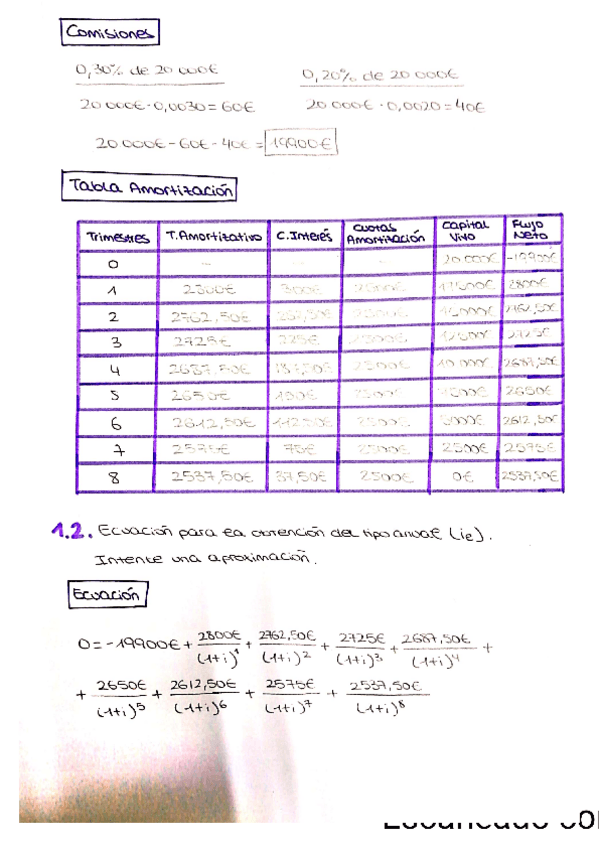 Comisiones
0,30% de 20 000€ 0,20% de 20 000€
20 000€ · 0,0030 = 60€ 20 000€ · 0,0020 = 40€
20 000€ - 60€ - 40€ = 19900€
Tabla Amortización
Trimestres T.Amortizativo C.Interés Cuotas Amortización Capital Vivo Flujo Neto
0 - - - 20 000€ -19900€
1 2800€ 300€ 2500€ 17500€ 2800€
2 2762,50€ 262,50€ 2500€ 15000€ 2762,50€
3 2725€ 225€ 2500€ 12500€ 2725€
4 2687,50€ 187,50€ 2500€ 10 000€ 2687,50€
5 2650€ 150€ 2500€ 7500€ 2650€
6 2612,50€ 112,50€ 2500€ 5000€ 2612,50€
7 2575€ 75€ 2500€ 2500€ 2575€
8 2537,50€ 37,50€ 2500€ 0€ 2537,50€
1.2. Ecuación para la obtención del tipo anual (ie).
Intente una aproximación.
Ecuación
0 = -19900€ + 2800€/(1+i)^1 + 2762,50€/(1+i)^2 + 2725€/(1+i)^3 + 2687,50€/(1+i)^4 +
+ 2650€/(1+i)^5 + 2612,50€/(1+i)^6 + 2575€/(1+i)^7 + 2537,50€/(1+i)^8